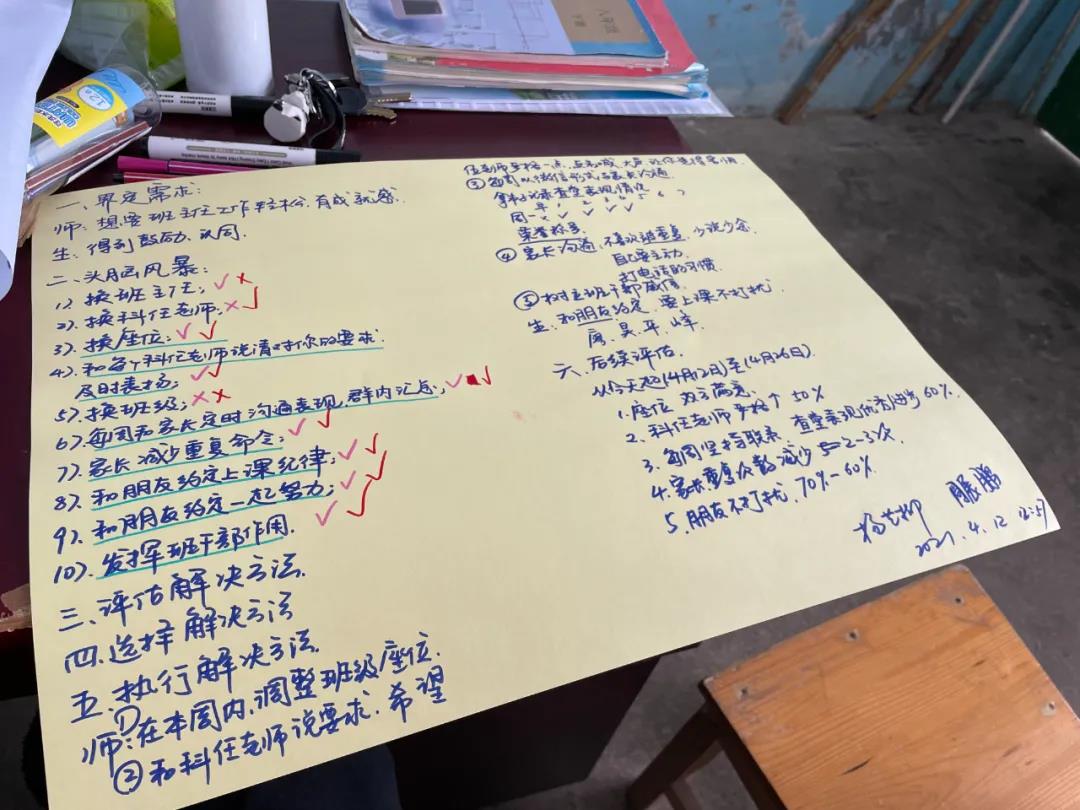 一、界定需求:
师:想要班主任工作轻松、有成就感
生:得到鼓励、认同.
二、头脑风暴:
1)、换班主任;✓×
2)、换科任老师;×✓
3)、换座位;✓✓
4)、和每个科任老师说清对你的要求.
及时表扬;✓✓
5)、换班级;××
6)、每周和家长定时沟通表现,群内汇总;✓✓
7)、家长减少重复命令;✓✓
8)、和朋友约定上课纪律;✓✓
9)、和朋友约定一起努力;✓✓
10)、发挥班干部作用.✓✓
三、评估解决方法.
四、选择解决方法
五、执行解决方法.
师:①在本周内,调整班级座位.
②和科任老师说要求.希望
任老师严格一点,
③每周以微信形式与家长沟通
拿着记录查堂表现情况
1 2 3 4 5 6 7
周一 × ✓ ✓ ✓ ✓
荣誉称号
④家长沟通,不喜欢被重复,少说少念
自己要主动
打电话的习惯
⑤树立班干部威信.
生:和朋友约定,要上课不打扰
六、后续评估.
从今天起(4月12日)至(4月26日)
1.座位 双方满意.
2、科任老师严格↑50%
3、每周坚持联系,查堂表现优秀进步60%.
4.家长重复次数减少 2-3次.
5.朋友不打扰.70%-60%
2021.4.12 12:57